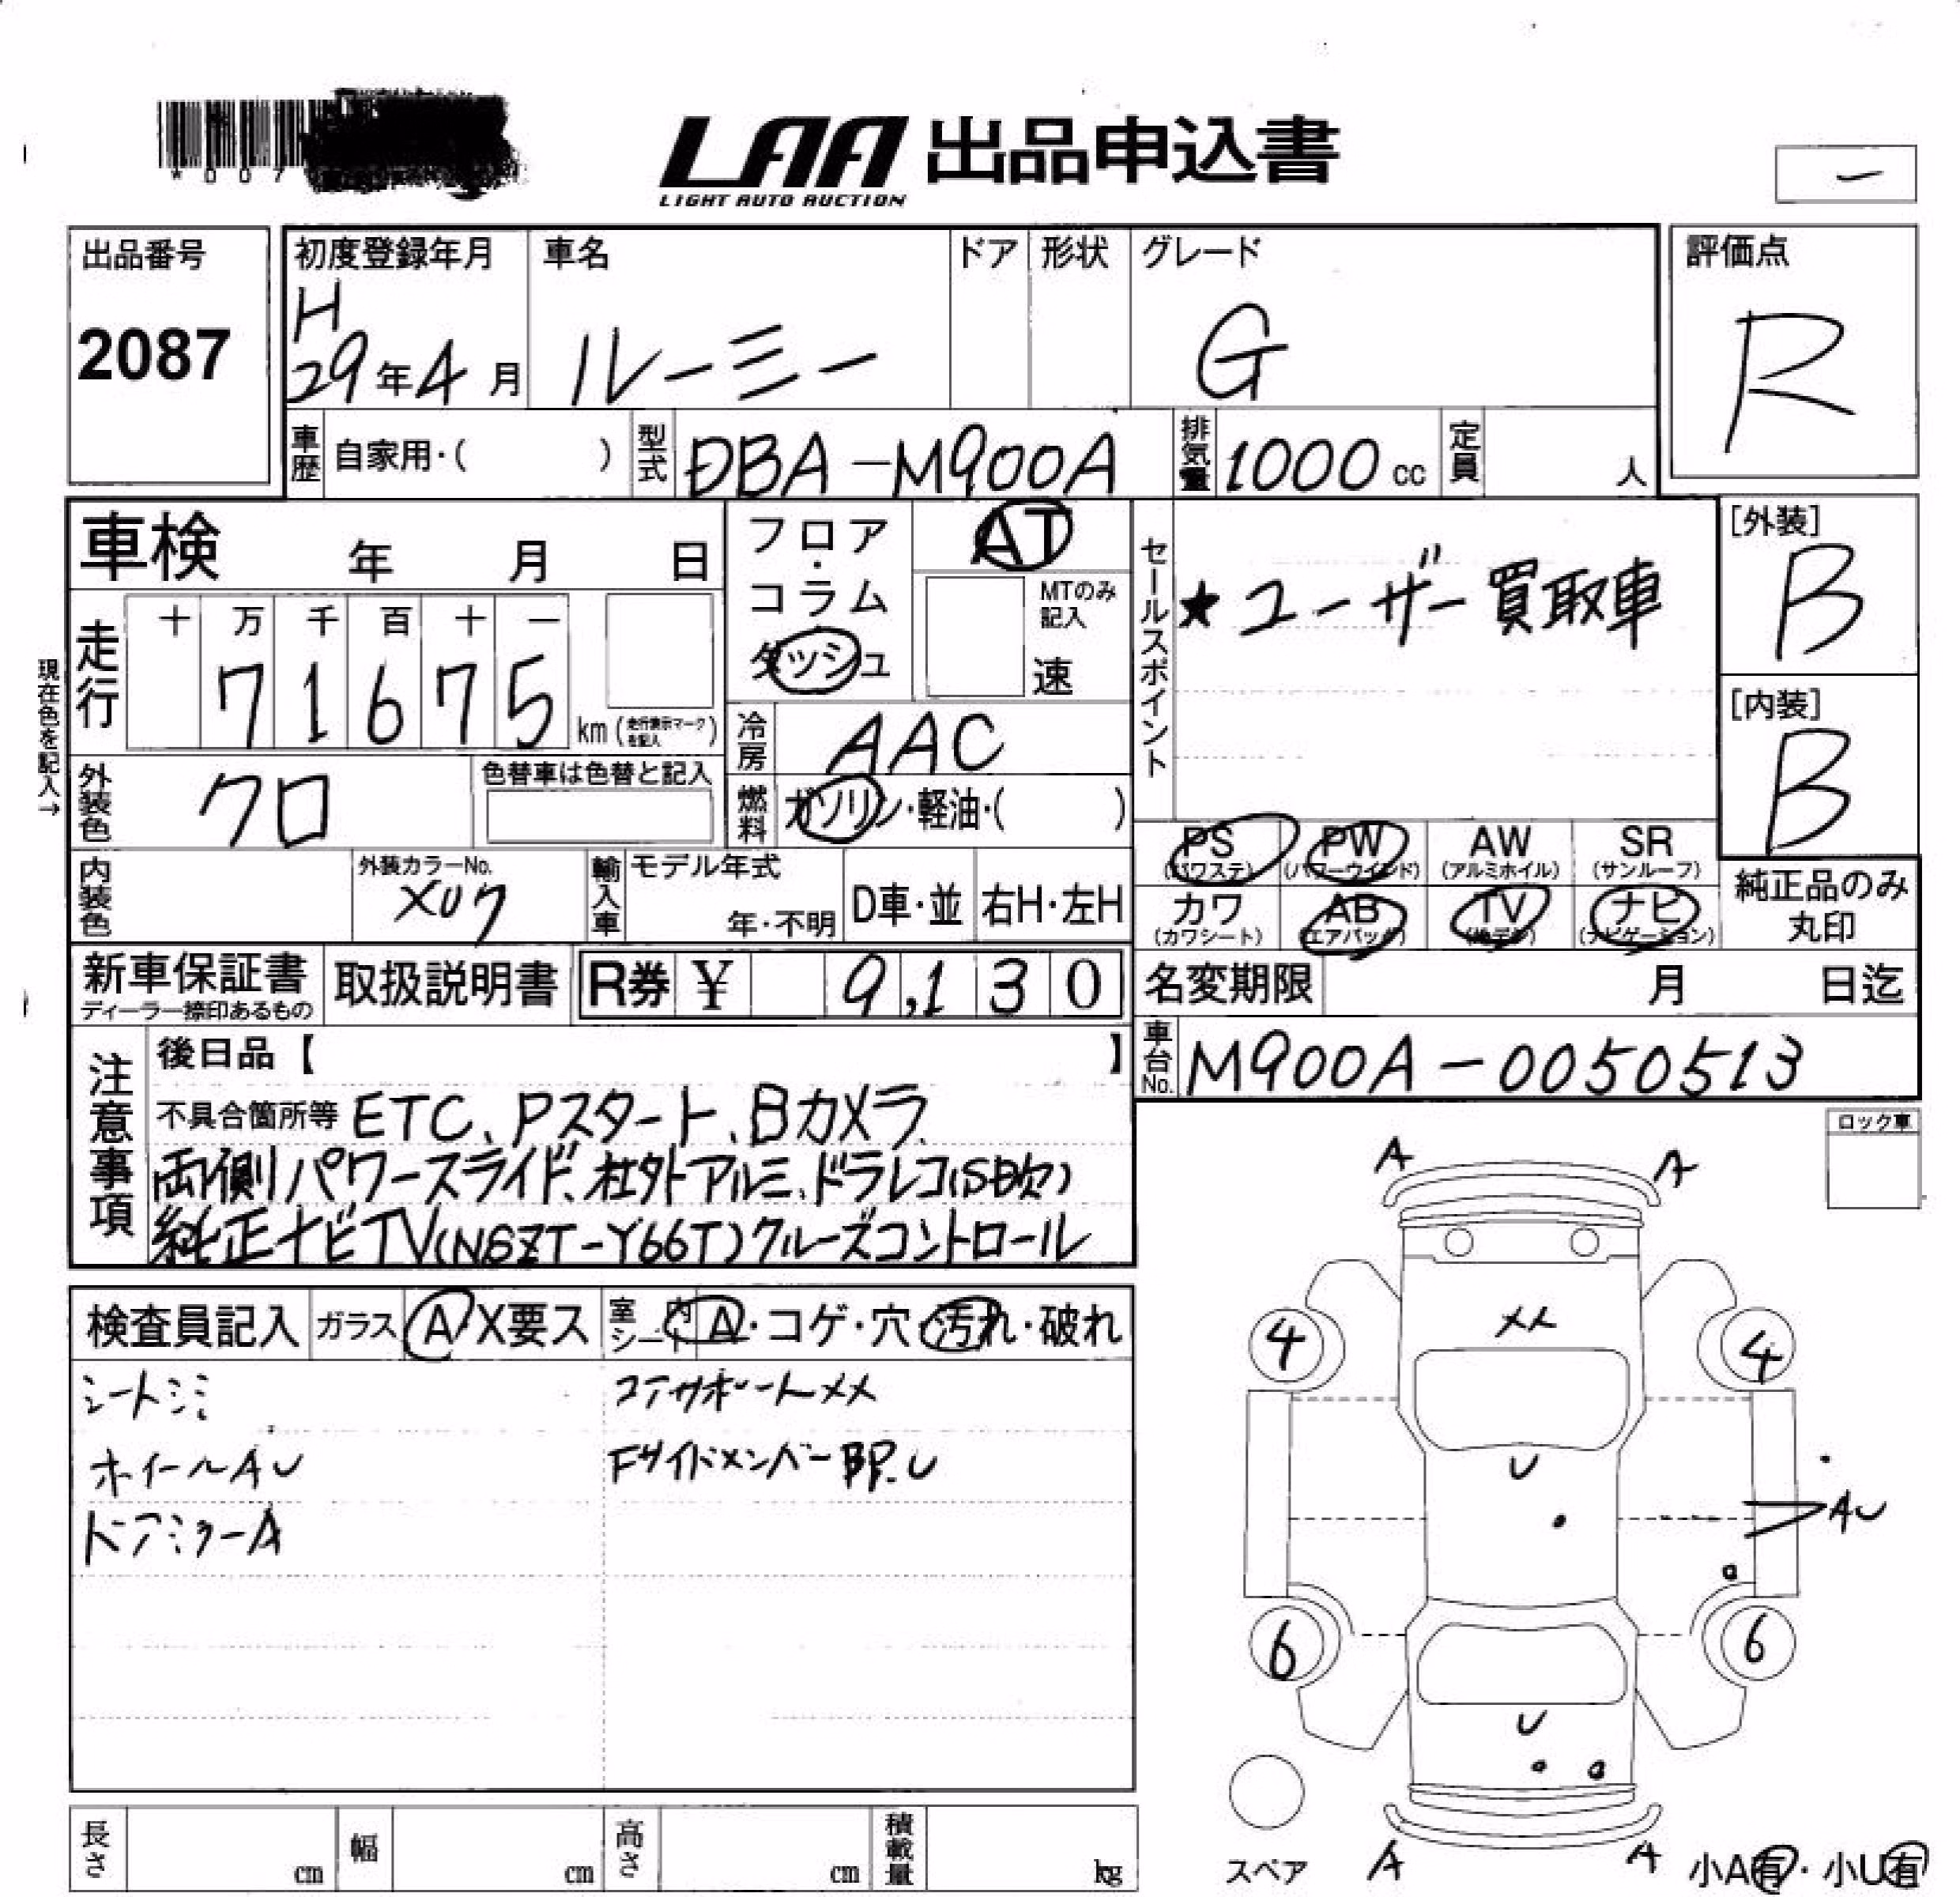 *007
LAA 出品申込書
LIGHT AUTO AUCTION
ー
出品番号
2087
初度登録年月
H
29年4月
車名
ルーミー
ドア
形状
グレード
G
評価点
R
車歴
自家用・( )
型式
DBA-M900A
排気量
1000 cc
定員
人
車検 年 月 日
フロア・コラム
ダッシュ
AT
MTのみ記入
速
セールスポイント
★ユーザー買取車
[外装]
B
[内装]
B
現在色を記入→
走行
十 万 千 百 十 一
7 1 6 7 5
km (走行表示マークを記入)
冷房
AAC
燃料
ガソリン・軽油・( )
外装色
クロ
色替車は色替と記入
内装色
外装カラーNo.
X07
輸入車
モデル年式
年・不明
D車・並
右H・左H
PS
(パワステ)
PW
(パワーウインド)
AW
(アルミホイル)
SR
(サンルーフ)
カワ
(カワシート)
AB
(エアバック)
TV
ナビ
(ナビゲーション)
純正品のみ
丸印
新車保証書
ディーラー捺印あるもの
取扱説明書
R券 ¥ 9,130
名変期限 月 日迄
車台No.
M900A-0050513
注意事項
後日品【 】
不具合箇所等 ETC、Pスタート、Bカメラ
両側パワースライド、社外アルミ、ドラレコ(SD欠)
純正ナビTV(NSZT-Y66T)クルーズコントロール
ロック車
検査員記入
ガラス
A X要ス
室内シート
A・コゲ・穴・汚れ・破れ
シートシミ
コアサポートメメ
ホイールAU
Fサイドメンバー部P.U
ドアミラーA
A A
4 4
メメ
U
AU
6 6
U
A A
スペア
小A有・小U有
長さ cm
幅 cm
高さ cm
積載量 kg